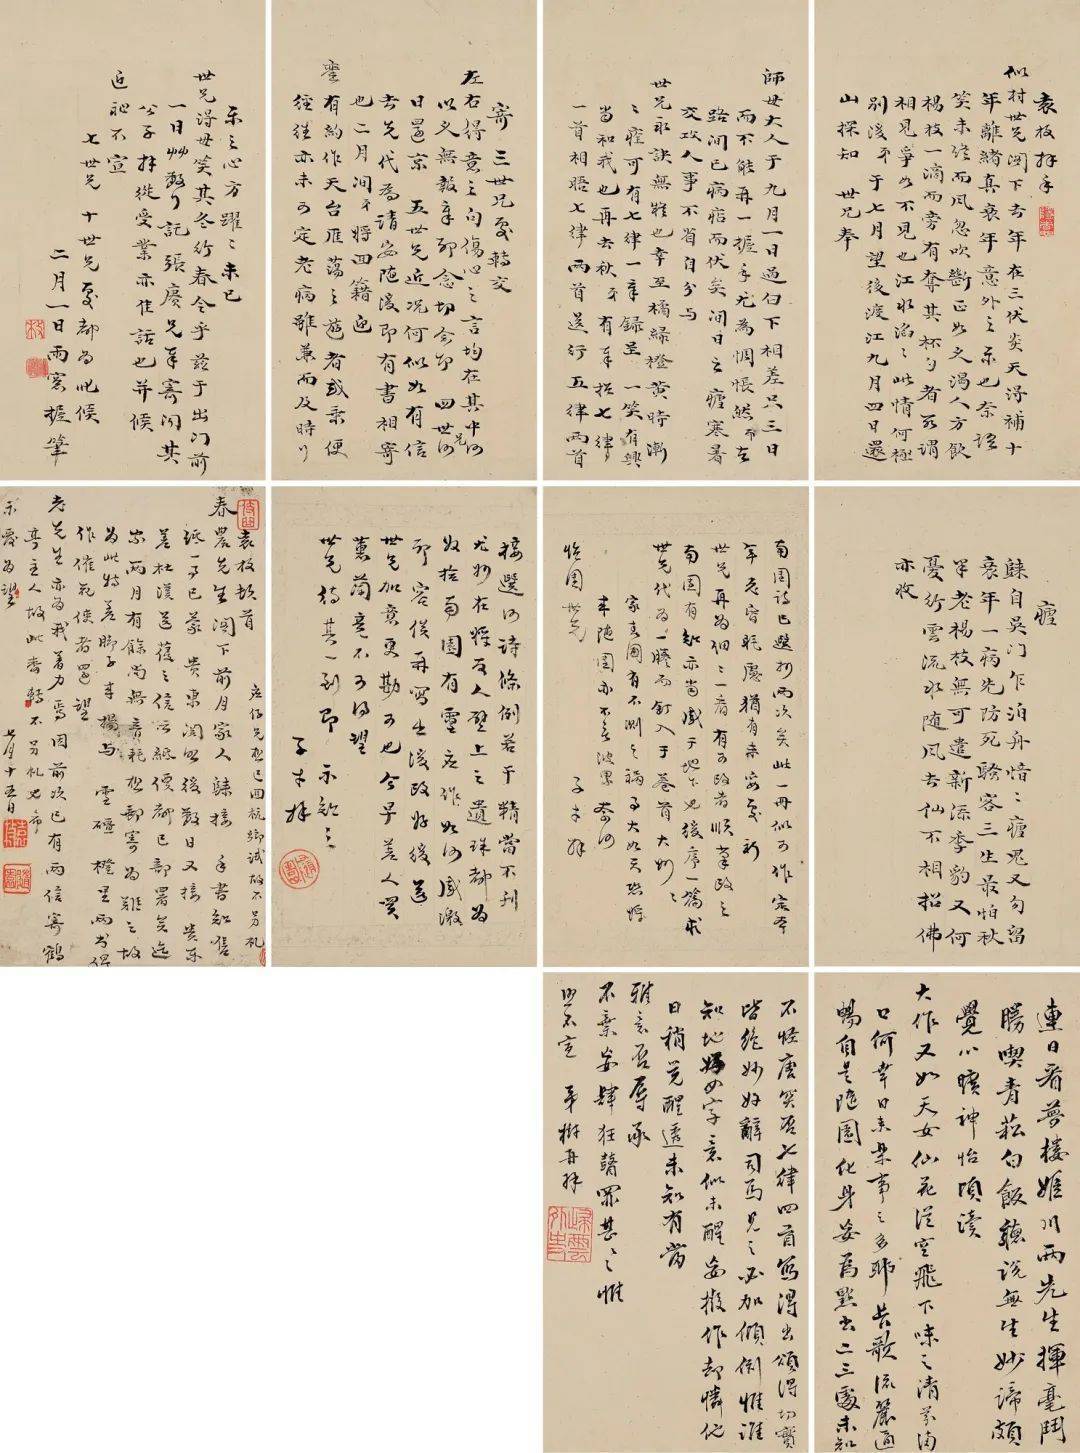 袁枚拜手
似村世兄閣下去年在三伏炎天得補十
年離緒真衰年意外之樂也奈語
笑未終而風忽吹斷正如久渴人方飲
楊枝一滴而旁有奪其杯勺者所謂
相見爭如不見也江水滔滔此情何極
別後弟于七月望後渡江九月四日還
山探知 世兄奉
師母大人于九月一日過白下相差只三日
而不能再一握手尤為惆悵然弟在
路間已病痁而伏矣間日之瘧寒暑
交攻人事不省自分与
世兄永訣無疑也幸至橘綠橙黃時漸
漸痊可有七律一章錄呈一笑有興
當和我也再去秋弟有奉招七律
一首相晤七律兩首送行五律兩首
寄 三世兄處轉交
左右得意之句傷心之言均在其中何
以久無報章耶念切今節 四世兄何
日還京 五世兄近況何似如有信
去先代為請安隨後即有書相寄
也二月間弟將回籍迎
鑾有約作天台雁蕩之遊者或乘便
徑往亦未可定老病雖兼而及時行
樂之心方躍躍未已
世兄得毋笑其冬行春令乎茲于出門前
一日艸數行託張賡兄奉寄聞其
公子拜從受業亦佳話也并候
近祉不宣
七世兄 十世兄處都為此候
二月一日雨窗握筆
瘧
歸自吳門乍泊舟愔愔瘧鬼又勾留
衰年一病先防死驕容三生最怕秋
早老楊枝無可遣新添李豹又何
憂行雲流水隨風去仙不相招佛
亦收
南園詩已選抄兩次矣此一冊似可作定本
年老眊慮猶有未安處祈
世兄再為細細一看有可改者順筆改之
南園有知亦當感于地下也後序一篇求
世兄代為一謄而釘入于卷首大妙大妙
家春圃有不測之禍事大如天恐將
來隨園亦不免波累奈何
悔園世兄 子才拜
接選詩條例若干精當不刊
尤妙在將友人壁上之遺珠都為
收拾南園有靈應作如何感激
耶容俟再寫後政好後送
世兄加意更勘可也今早差人買
蕙蘭竟不可得望
世兄其一到即示知之
子才拜
袁枚頓首
春農先生閣下前月家人騄接手書知售
紙一事已蒙 貴東關照後數日又接 貴東
差杜漢送覆之信云紙價都已部署矣迄
今兩月有餘尚無音耗想郵寄為難之故
為此特差脚子李楊與 雲礎橙里兩書俾
作催使者還望
老先生亦為我着力焉因前次已有兩信寄鶴
亭主人故此番轉不另札也希
示覆為望 七月十五日
連日看夢樓姬川兩先生揮毫鬥
勝喫青菘白飯聽說無生妙諦頗
覺心曠神怡頃讀
大作又如天女仙花從空飛下味之清芬滿
口何幸日來樂事之多耶長歌流麗適
暢自是隨園化身妄為點出二三處未知
不怪唐突否七律四首寫得出頌得切實
皆絕妙好辭司馬見之必加傾倒惟誰
知地字意似未醒妄擬作却憐他
日稍覺醒透未知有當
雅意否辱承
不棄妄肆狂瞽罪甚罪甚惟
照不宣 弟樹再拜